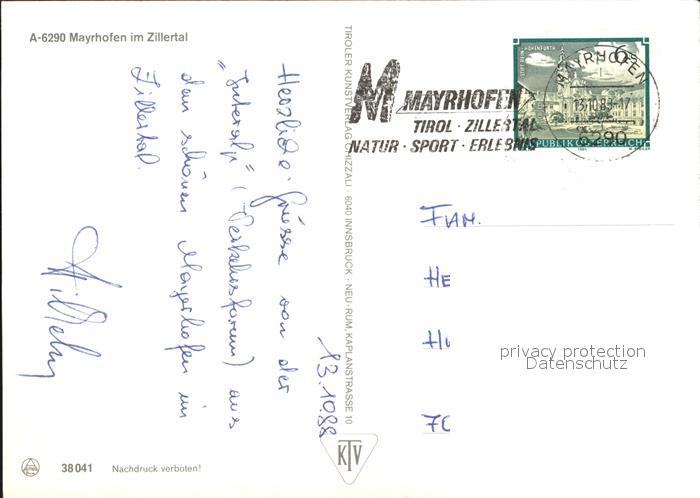 A-6290 Mayrhofen im Zillertal
13.10.88
Herzliche Grüsse von der
"Interalp" (Verkehrsforum) aus
dem schönen Mayerhofen im
Zillertal.
Wilhelm
38041 Nachdruck verboten!
TIROLER KUNSTVERLAG CHIZZALI · 6040 INNSBRUCK · NEU-RUM, KAPLANSTRASSE 10
KTV
M MAYRHOFEN
TIROL · ZILLERTAL
NATUR · SPORT · ERLEBNIS
MAYRHOFEN
13.10.88-17
6290
STIFT REIN-HOHENFURTH
6
REPUBLIK ÖSTERREICH
FAM.
HE
HU
70
privacy protection
Datenschutz